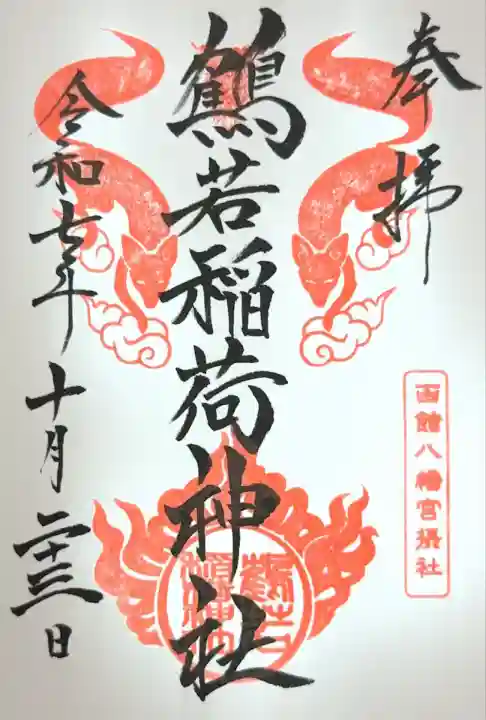 奉拝
函館八幡宮摂社
鶴若稲荷神社
令和七年十月二十三日